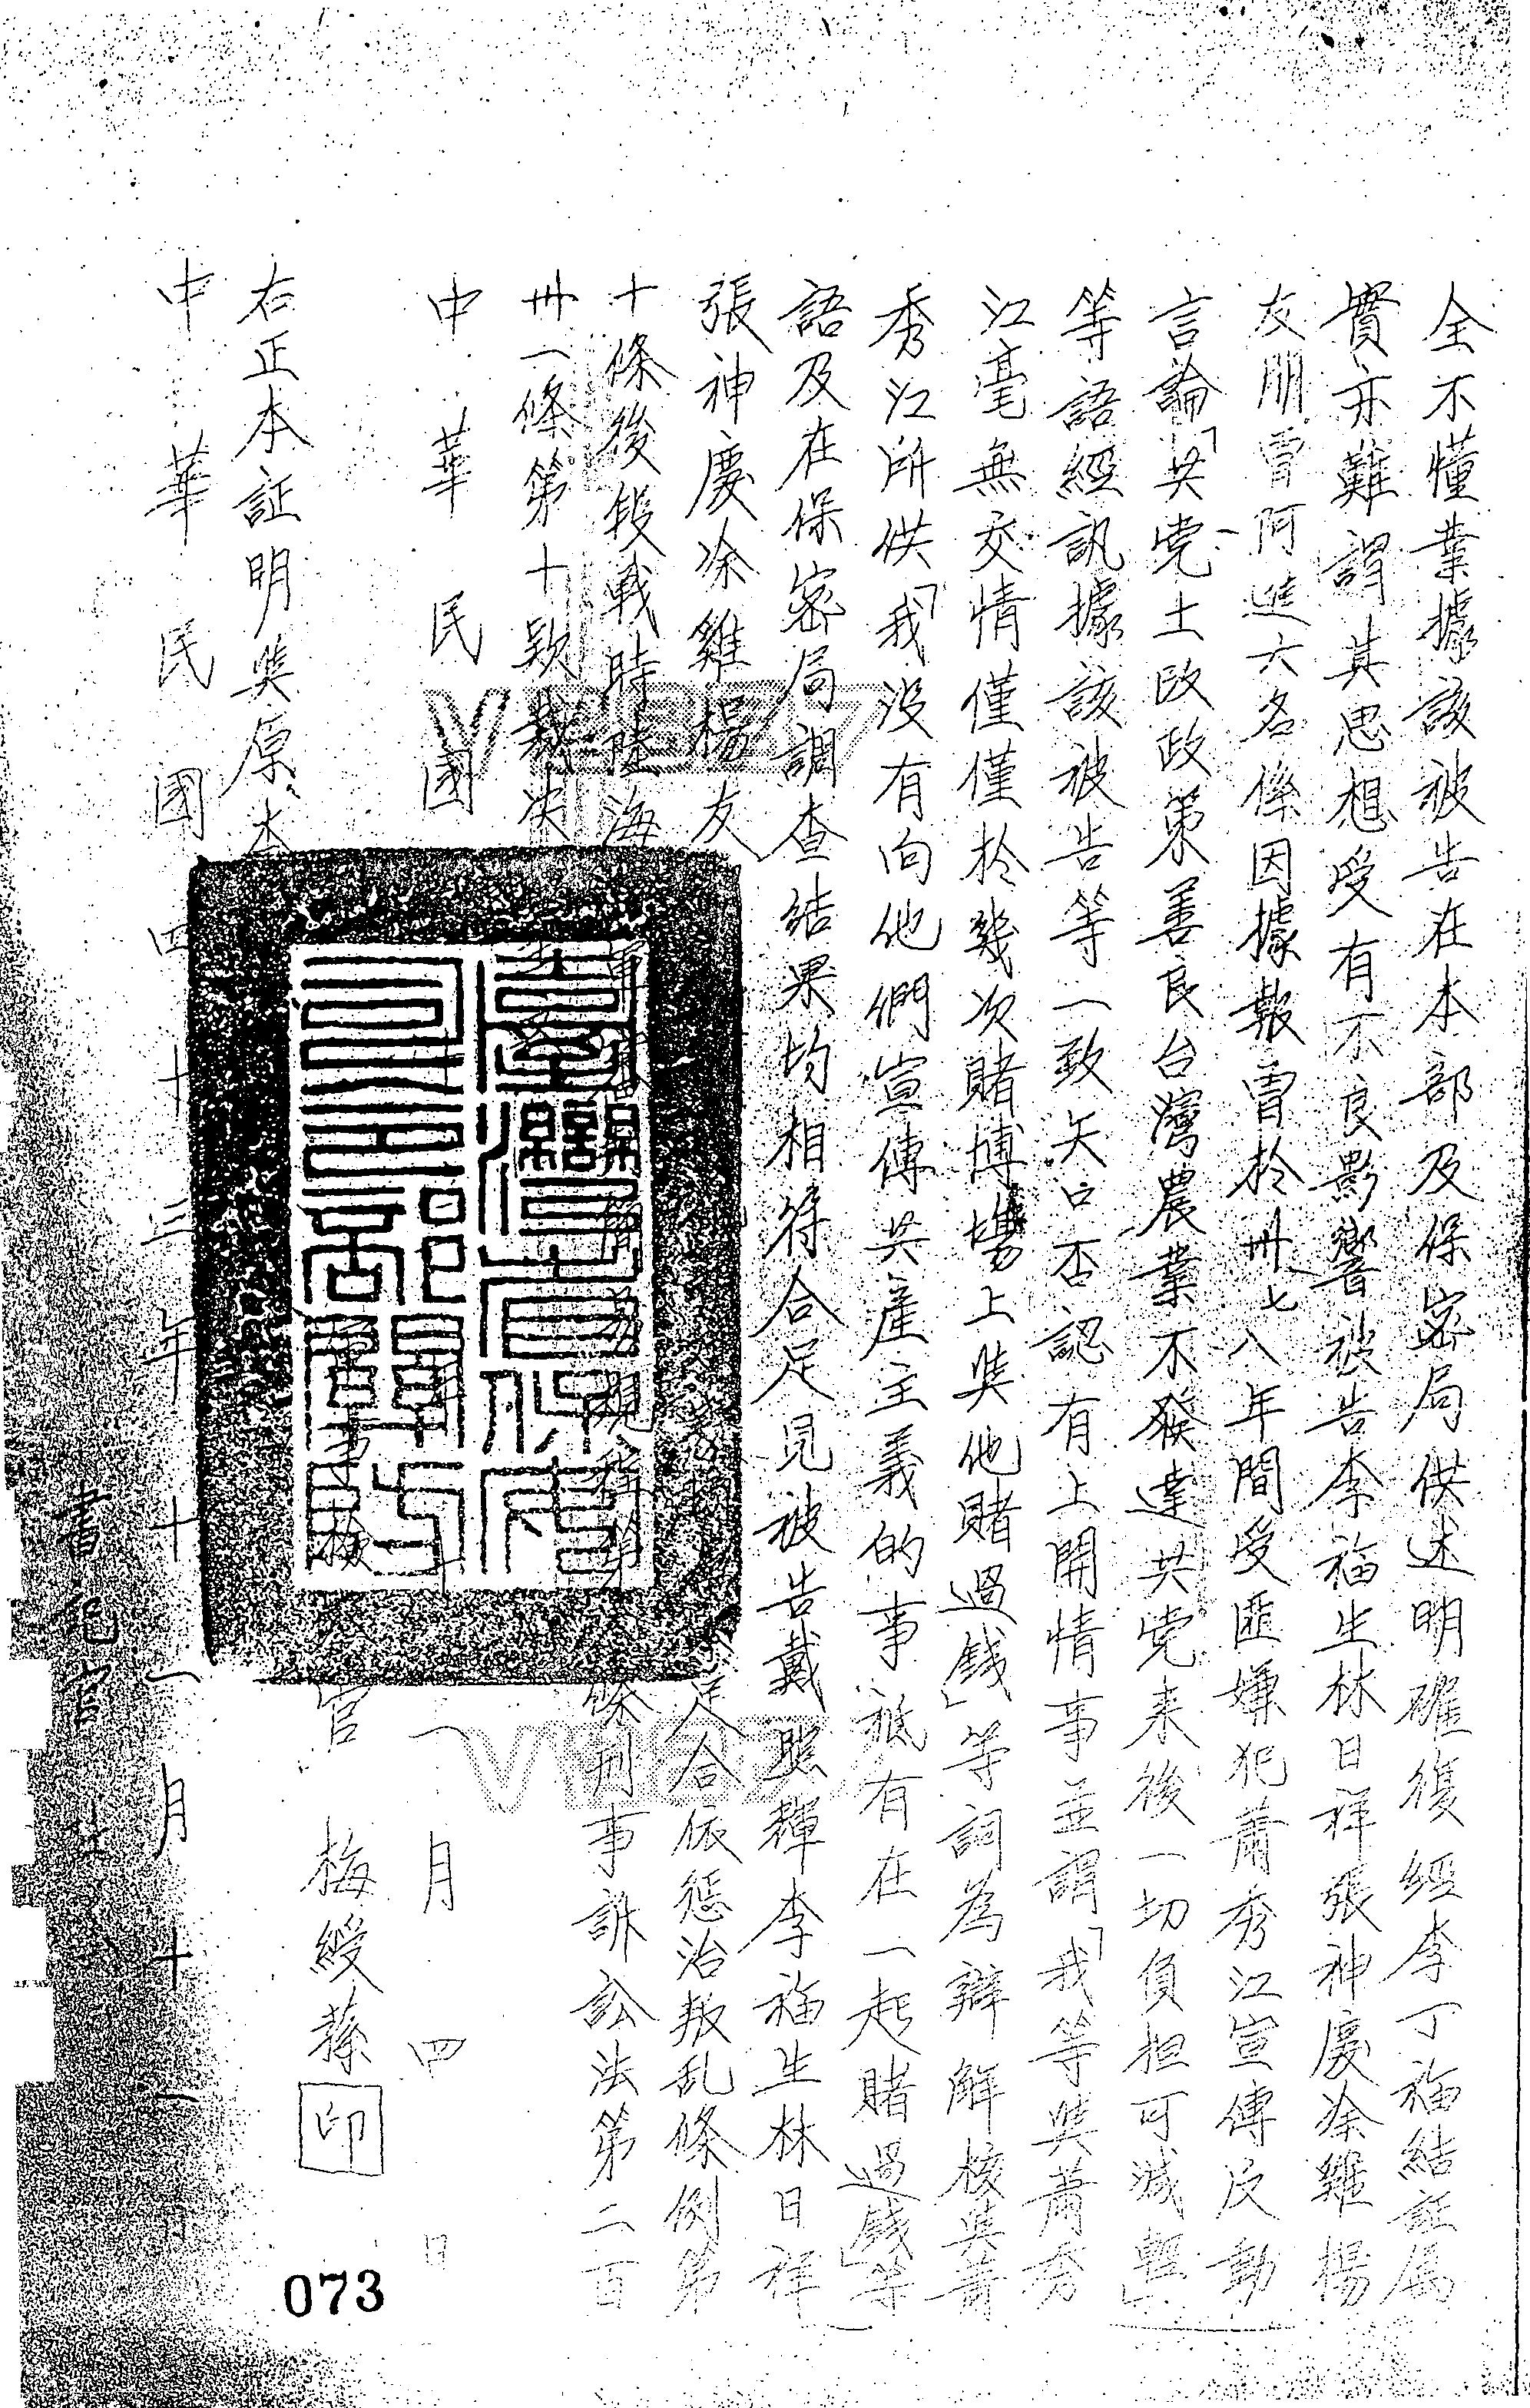 全不懂業據該被告在本部及保密局供述明確復經李丁福結証屬
實亦難謂其思想受有不良影響被告李福生林日祥張神慶涂雞楊
友朋曹阿進六名係因據報曹於卅七八年間受匪嫌犯蕭秀江宣傳反動
言論「共党土政政策善良台灣農業不發達共党來後一切負担可減輕」
等語經訊據該被告等一致矢口否認有上開情事並謂「我等與蕭秀
江毫無交情僅僅於幾次賭博場上與他賭過錢」等詞為辯解核與蕭
秀江所供「我沒有向他們宣傳共產主義的事祗有在一起賭過錢」等
語及在保密局調查結果均相符合足見被告戴照輝李福生林日祥
張神慶涂雞楊友 足合依懲治叛乱條例第
十條後段戰時陸海 條刑事訴訟法第二百
卅一條第十款裁決
中華民國 一月四日
官 梅綬蓀 印
右正本証明與原本
中華民國四十三年十一月十一
書記官
073